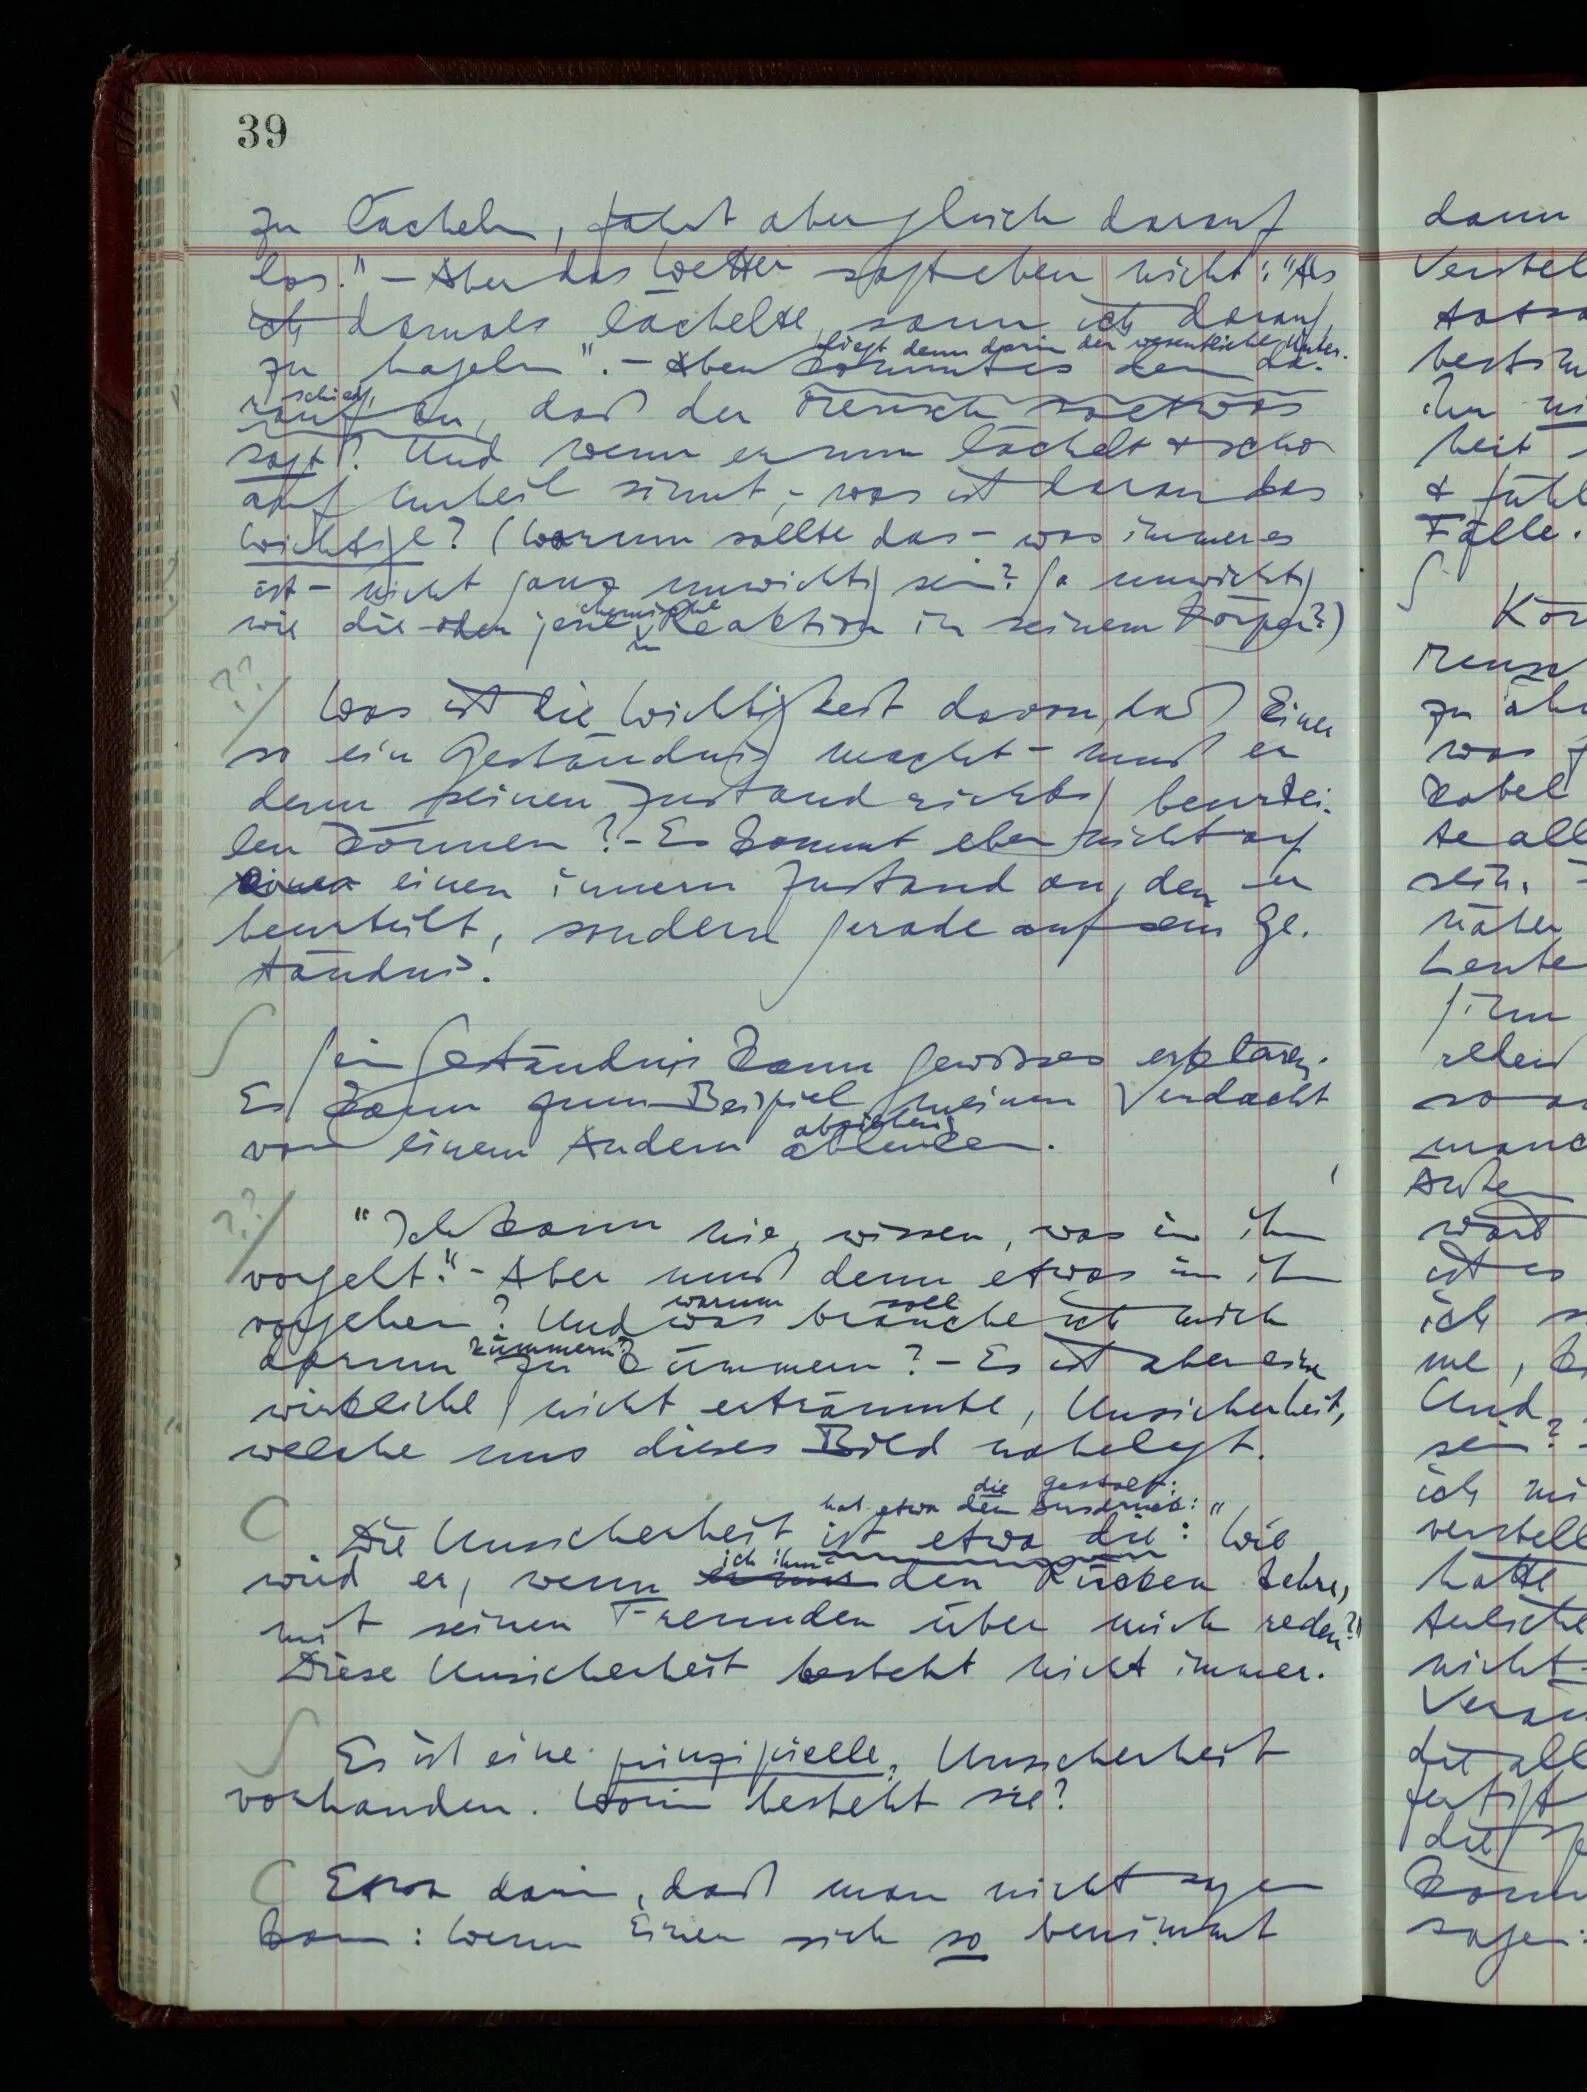 39
zu lächeln, fährt aber gleich darauf
los." – Aber das Wetter sagt eben nicht: "Als
ich damals lächelte, sann ich darauf,
liegt denn darin der wesentliche Unter-
zu hageln". – Aber kommt es denn da-
schied,
rauf an, daß der Mensch so etwas
sagt? Und wenn er nun lächelt & schon
auf Unheil sinnt, – was ist daran das
Wichtige? (Warum sollte das – was immer es
ist – nicht ganz unwichtig sein? So unwichtig
chemische
wie die oder jene Reaktion in seinem Körper?)
??/
Was ist die Wichtigkeit davon, daß Einer
so ein Geständnis macht – muß er
denn seinen Zustand richtig beurtei-
len können? – Es kommt eben nicht auf
einen innern Zustand an, den er
beurteilt, sondern gerade auf sein Ge-
ständnis.
S
Sein Geständnis kann gewisses erklären.
Es kann zum Beispiel meinen Verdacht
abziehen
von einem Andern ablenken.
??/
"Ich kann nie wissen, was in ihm
vorgeht." – Aber muß denn etwas in ihm
warum soll
vorgehen? Und was brauche ich mich
kümmern?
darum zu kümmern? – Es ist aber eine
wirkliche, nicht erträumte, Unsicherheit,
welche uns dieses Bild nahelegt.
die Gestalt:
hat etwa den Ausdruck:
C
Die Unsicherheit ist etwa die: "Wie
ich ihm
wird er, wenn er mir den Rücken kehre,
mit seinen Freunden über mich reden?"
Diese Unsicherheit besteht nicht immer.
S
Es ist eine prinzipielle Unsicherheit
vorhanden. Worin besteht sie?
C
Etwa darin, daß man nicht sagen
kann: Wenn Einer sich so benimmt
dann
Verstel
bestim
ihn
heit
& fühl
Fälle.
S
Kön
Mensc
zu äh
was
te all
sein.
näher
Leute
reden
so
manc
ist es
ich
me,
Und
sein?
ich mi
verstell
hätte
nicht
die all
die
sagen: